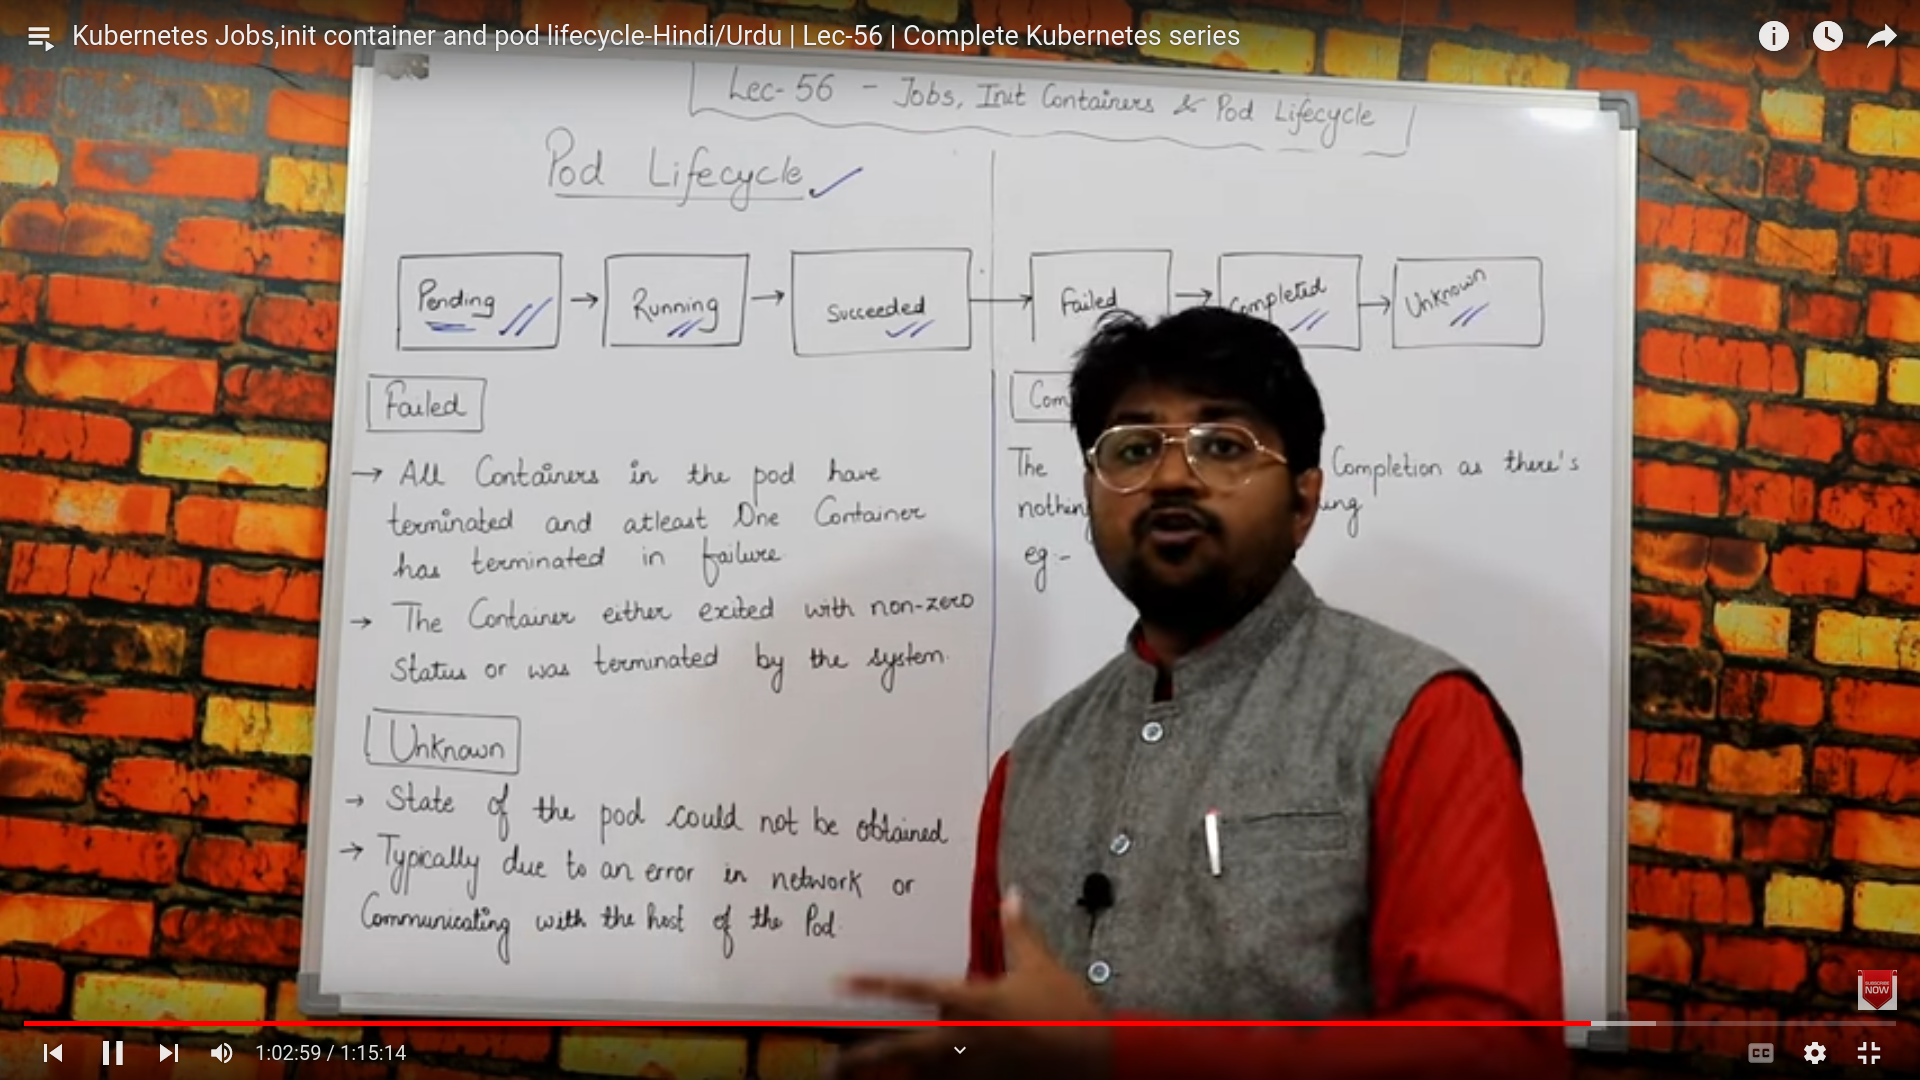 Kubernetes Jobs,init container and pod lifecycle-Hindi/Urdu | Lec-56 | Complete Kubernetes series
Lec-56 - Jobs, Init Containers & Pod Lifecycle
Pod Lifecycle
Pending → Running → Succeeded → Failed → Completed → Unknown
Failed
→ All Containers in the pod have
terminated and atleast One Container
has terminated in failure.
→ The Container either exited with non-zero
Status or was terminated by the system.
Unknown
→ State of the pod could not be obtained
→ Typically due to an error in network or
Communicating with the host of the Pod.
Com
The Completion as there's
nothing
eg:-
SUBSCRIBE
NOW
1:02:59 / 1:15:14
CC